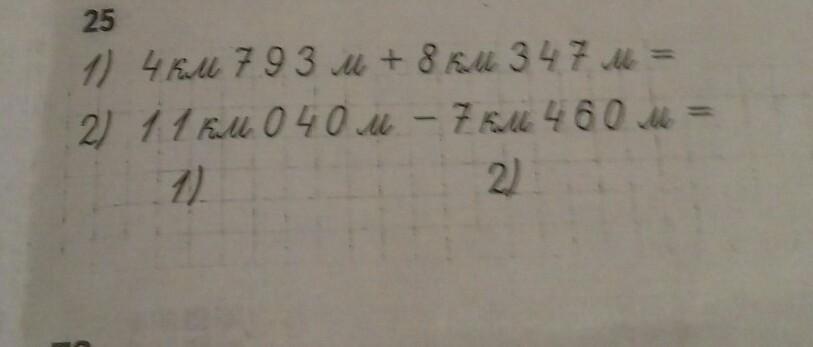 25
1) 4 км 793 м + 8 км 347 м =
2) 11 км 040 м – 7 км 460 м =
1) 2)